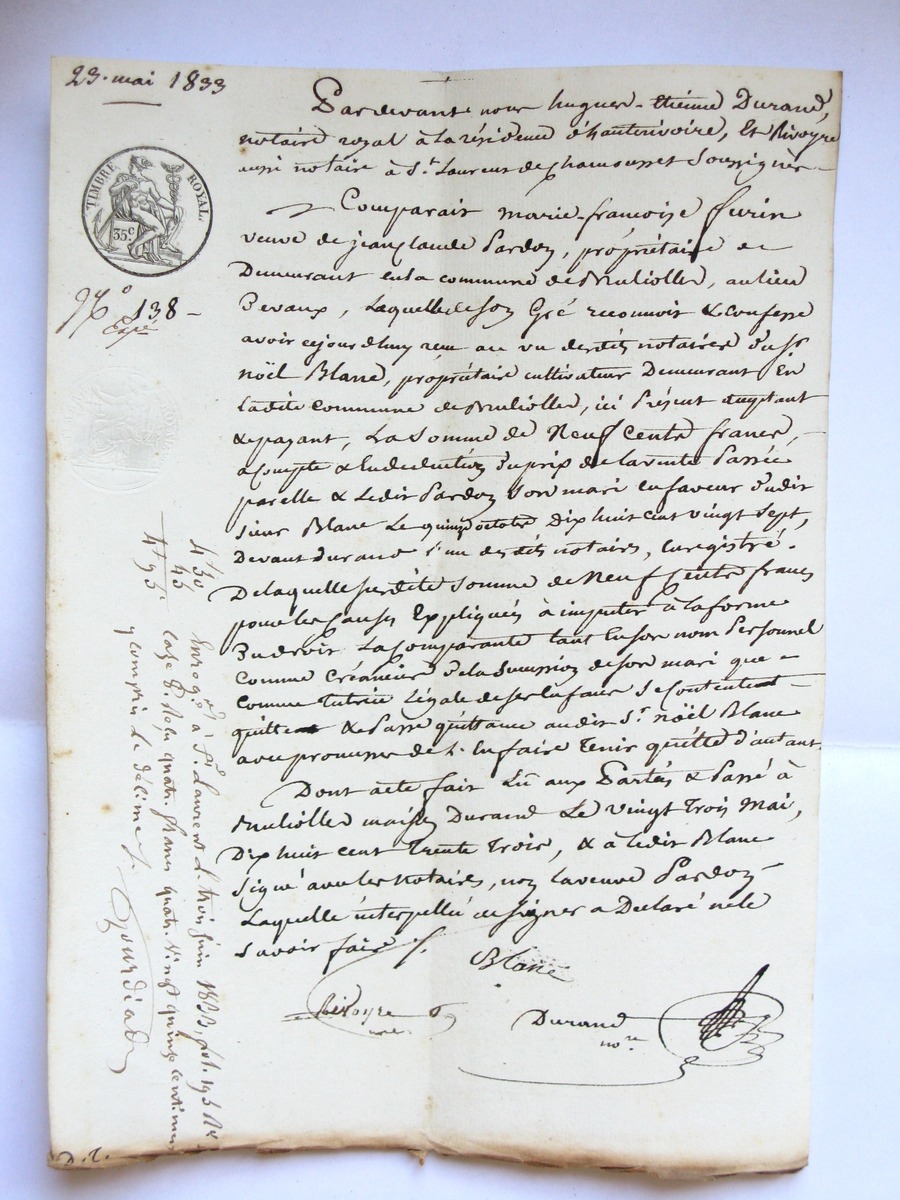 23. mai 1833
Pardevant nous hugues-étienne Durand,
notaire royal à la résidence d'hauterivoire, Et Rivoyre
aussi notaire à St. Laurent de chamousset Soussignés
TIMBRE ROYAL.
35c
No 138 -
Comparait marie-françoise
veuve de jean claude Pardon, propriétaire et
Demeurant en la commune de Brullioles, au lieu
De vaux, Laquelle de son Gré reconnoit & confesse
avoir cejourdhuy reçu au vu desdits notaires du sr.
noël Blanc, propriétaire cultivateur Demeurant En
Ladite Commune de Brullioles, ici Présent acceptant
& payant, La Somme de Neuf Cents francs,
acompte & En deduction du prix de la vente Passée
par elle & Ledit Pardon son mari en faveur dudit
sieur Blanc Le quinze octobre Dix huit cent vingt Sept,
Devant Durand l'un desdits notaires, Enregistré.
De laquelle susdite somme de Neuf Cents francs
pour les Causes Expliquées à imputer à la forme
Du droit La Comparante tant En son nom Personnel
comme Créancière de la Succession de son mari que
comme tutrice Légale de ses Enfans se Contente
quitte & Passe quittance audit Sr. noël Blanc
avec promesse de L'En faire tenir quitte d'autant
Dont acte fait Lu aux Parties & Passé à
Brullioles maison Durand Le vingt trois Mai,
Dix huit cent trente trois, & a ledit Blanc
signé avec les notaires, non la veuve Pardon
Laquelle interpellée de signer a Declaré ne le
savoir faire
Blanc
Rivoyre
Durand
nore
4 f 50
45
4 f 95c
Enregé. à St. Laurent le trois juin 1833, fol. 195 Ro
case 8. Reçu quatre francs quatre vingt quinze centimes
y compris le décime
D.C.